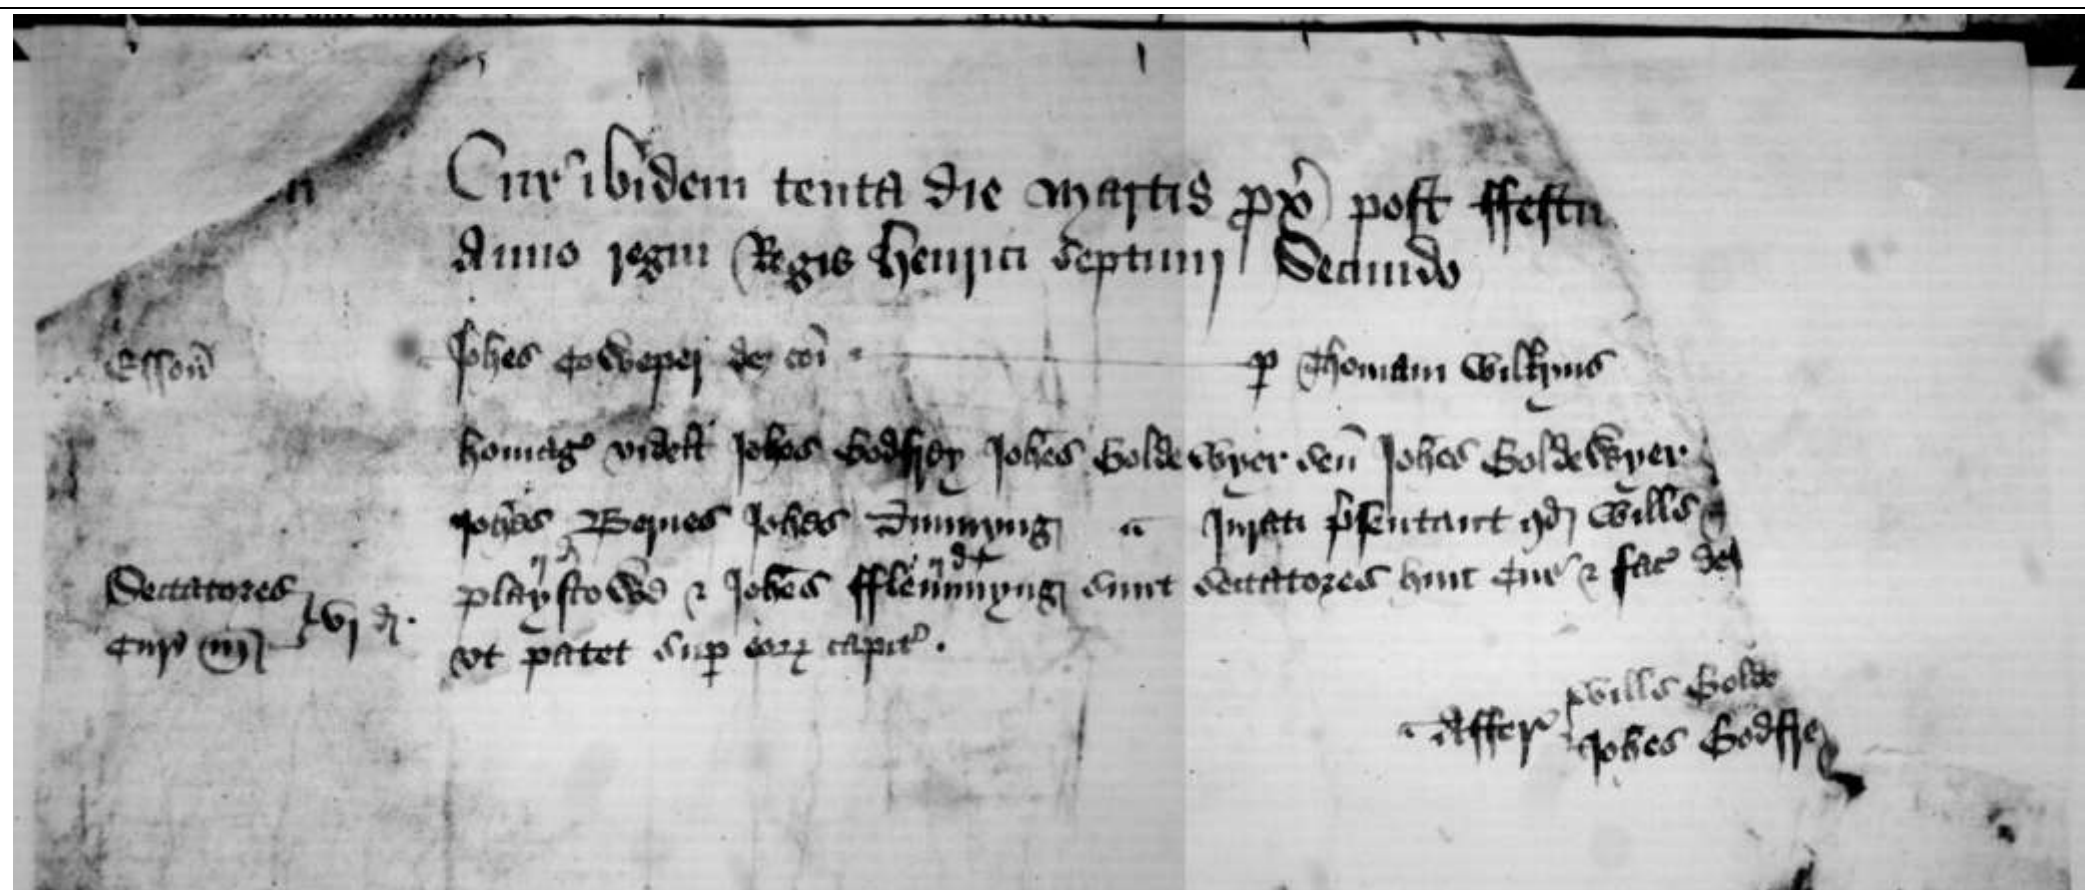 Cur ibidem tenta die martis px post ffestu
Anno regni Regis Henrici septimi Secundo
Esson Johes Cowper de coi p Thomam Wilkyns
homag videlt Johes Godfrey Johes Goldewyer sen Johes Goldewyer
Johes Bernes Johes Dunnyng Jurati psentant qd Wills
ij d ij d
Sectatores vj d. playstowe & Johes fflemmyng sunt sectatores huic Cur & fac def
Cur ut patet sup eorr capit.
Wills Golde
Affer Johes Godffre